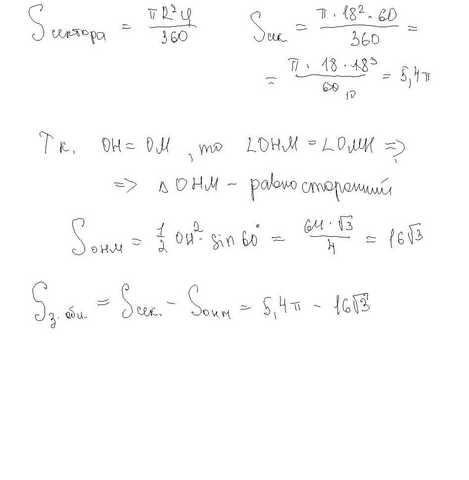 S сектора = πR²φ/360   S сек = π · 18² · 60/360 =
= π · 18 · 18³/60 10 = 5,4π
Т.к. OH = OM, то ∠OHM = ∠OMH =>
=> △OHM – равносторонний
S онм = 1/2 OH² · sin 60° = 64 · √3/4 = 16√3
S з. обл. = S сек. – S онм = 5,4π – 16√3